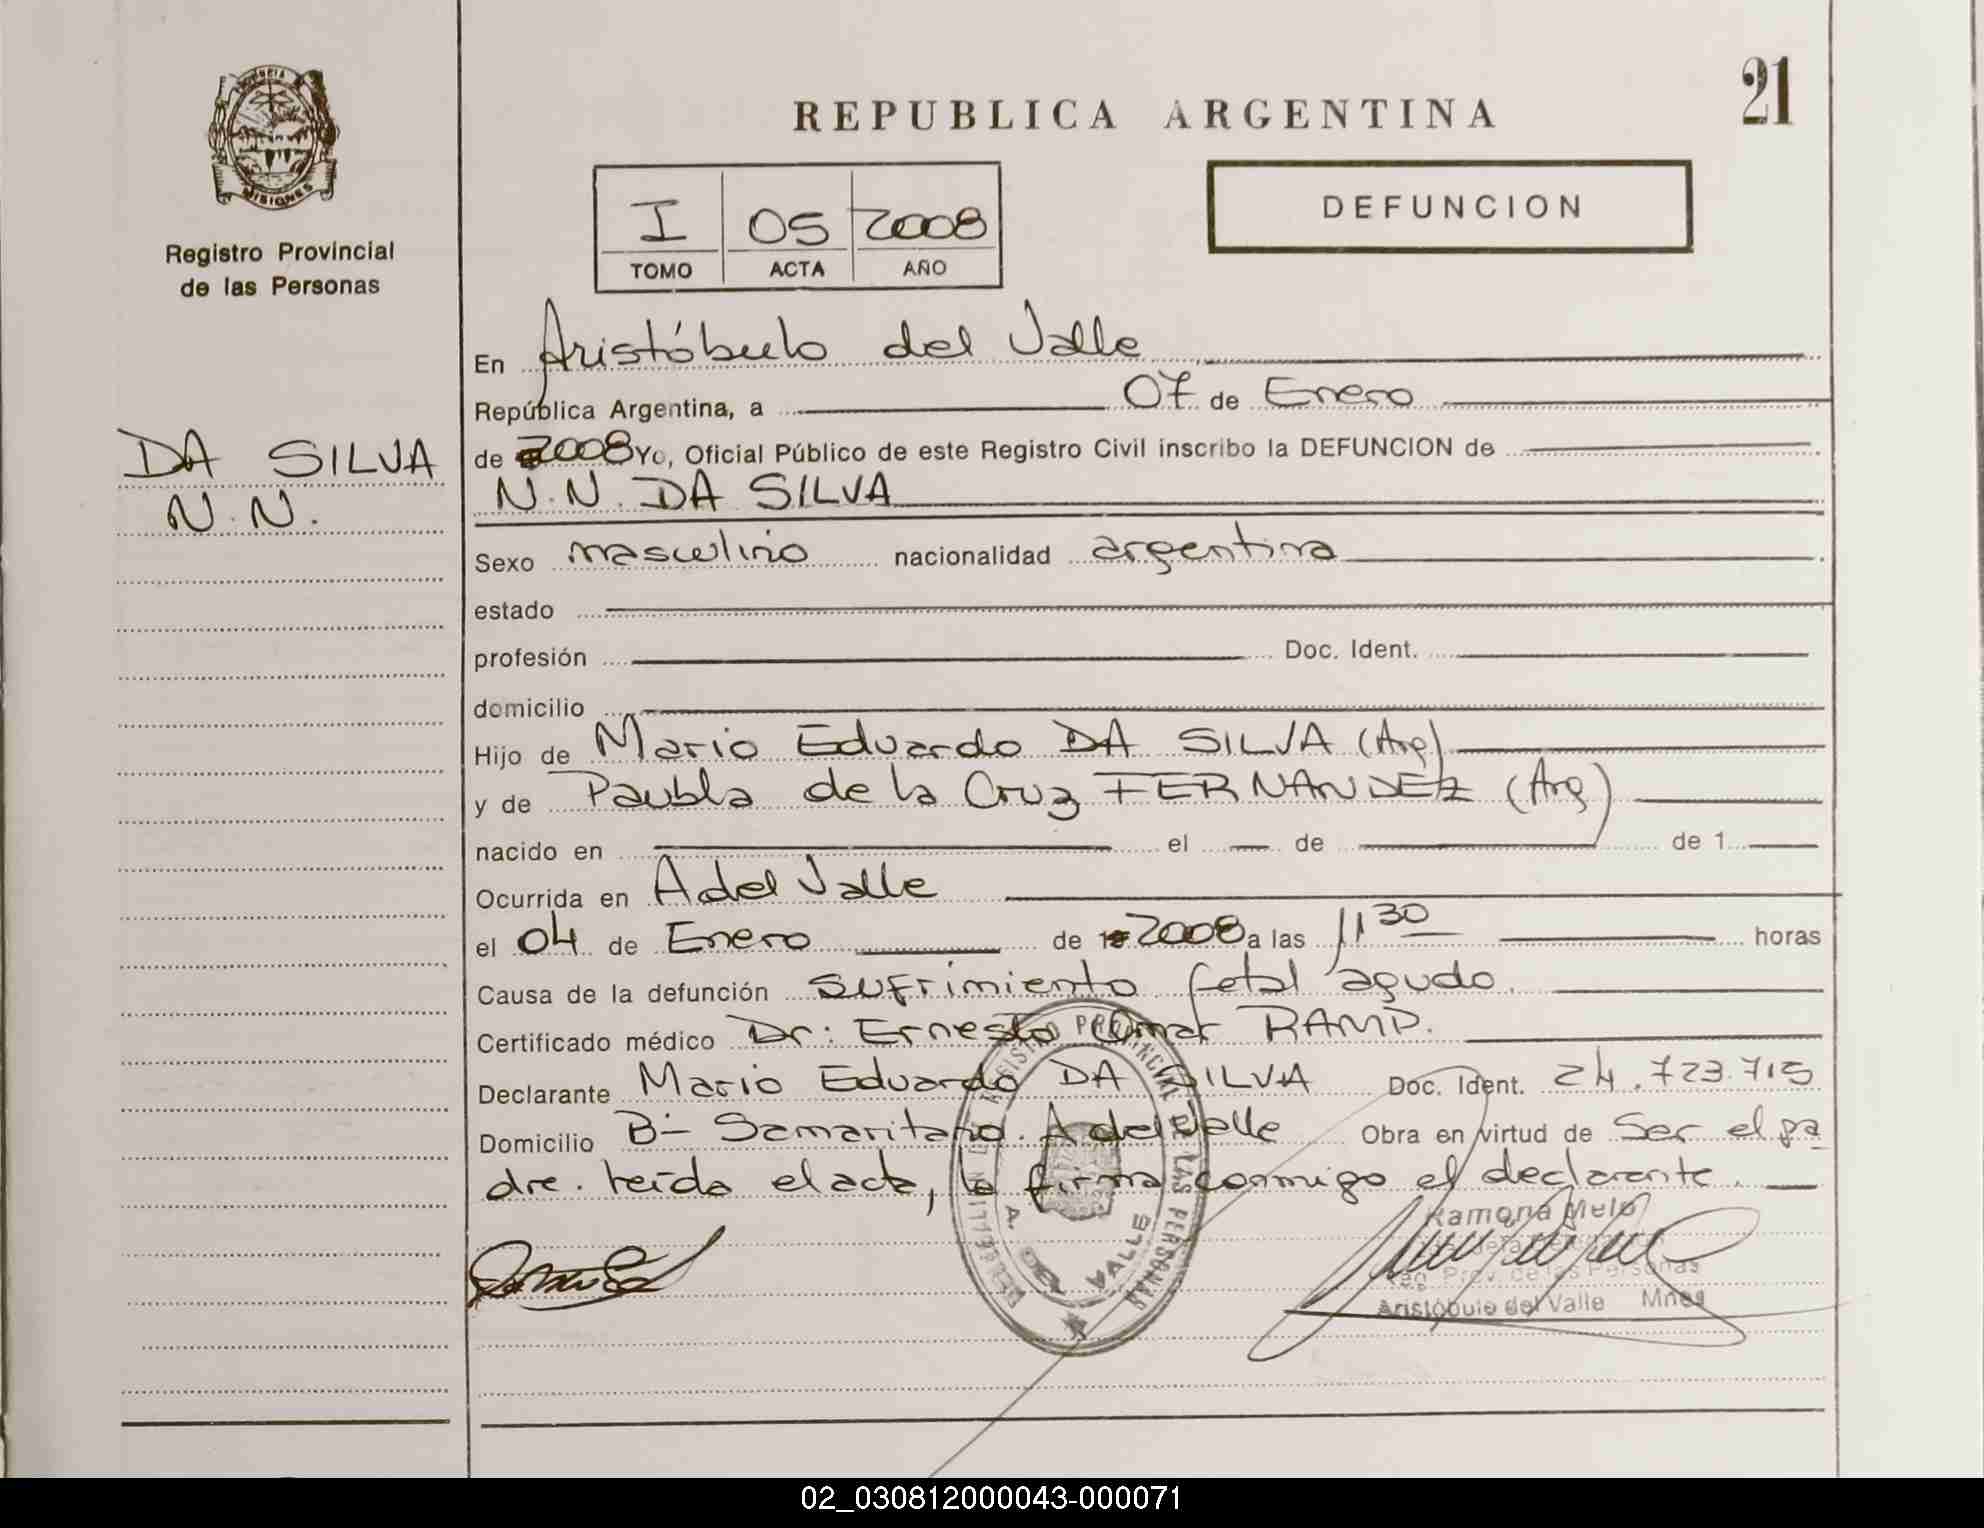 PROVINCIA
MISIONES
Registro Provincial
de las Personas
DA SILVA
N.N.
REPUBLICA ARGENTINA
21
I 05 2008
TOMO ACTA AÑO
DEFUNCION
En Aristóbulo del Valle
República Argentina, a 07 de Enero
de 2008 Yo, Oficial Público de este Registro Civil inscribo la DEFUNCION de
N.N. DA SILVA
Sexo masculino nacionalidad argentina
estado
profesión Doc. Ident.
domicilio
Hijo de Mario Eduardo DA SILVA (Arg)
y de Paubla de la Cruz FERNANDEZ (Arg)
nacido en el de de 1
Ocurrida en A del Valle
el 04 de Enero de 2008 a las 11 30 horas
Causa de la defunción sufrimiento fetal agudo.
Certificado médico Dr: Ernesto Omar RAMP.
Declarante Mario Eduardo DA SILVA Doc. Ident. 24.723.715
Domicilio B- Samaritano. A del Valle Obra en virtud de Ser el pa
dre. leída el acta, la firma conmigo el declarante.
REGISTRO PROVINCIAL DE LAS PERSONAS
A. DEL VALLE
Ramona Melo
Reg Prov. de las Personas
Aristóbulo del Valle Mnes
02_030812000043-000071